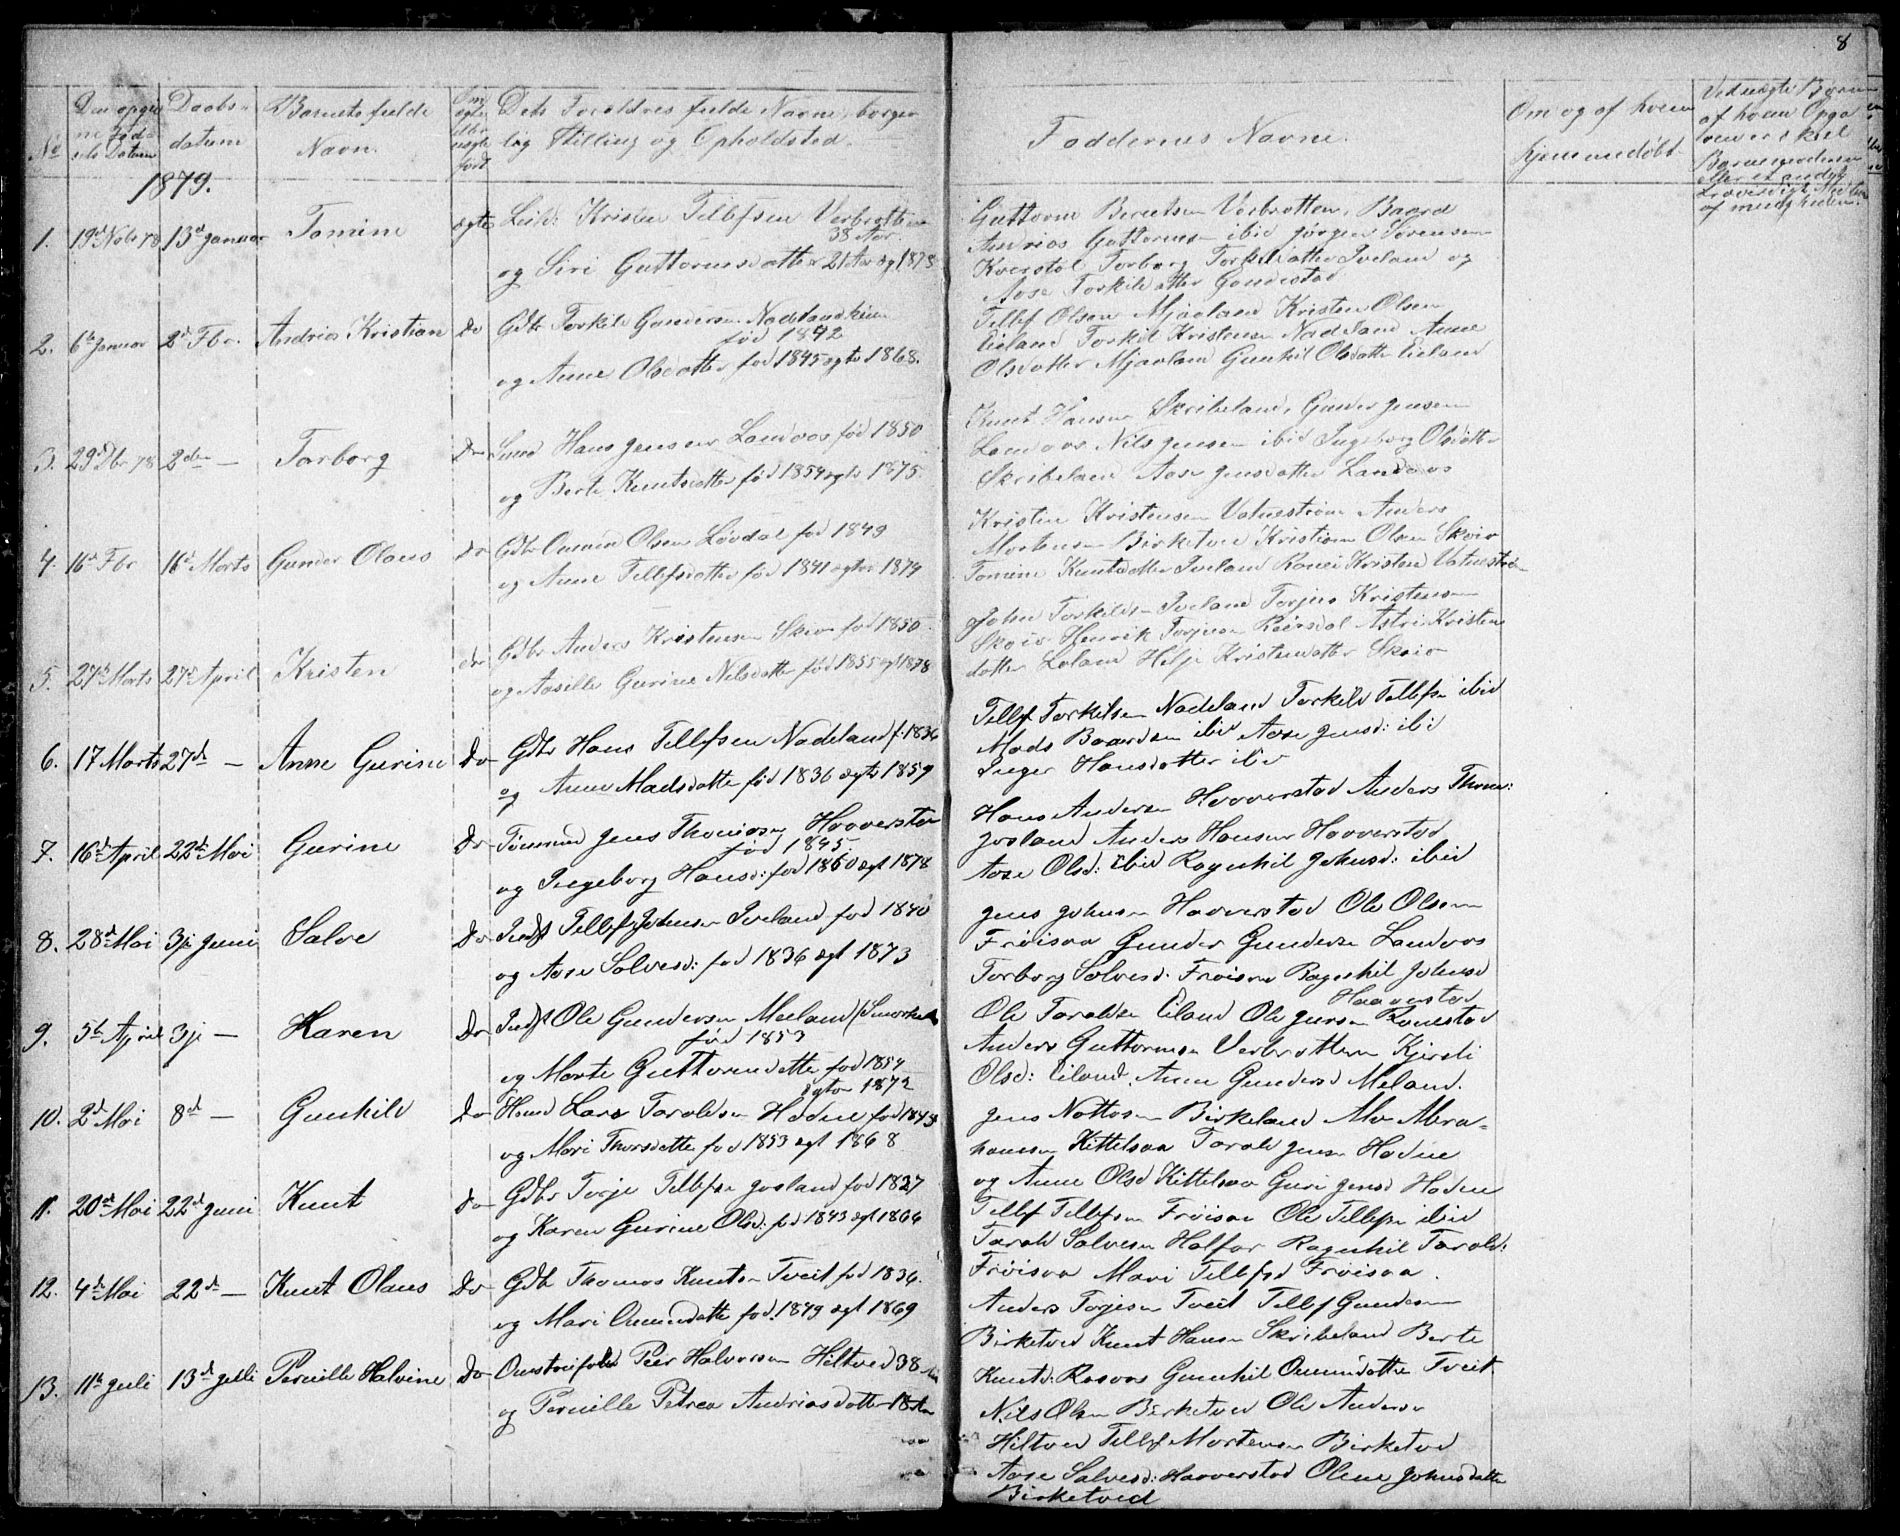 8
No
Den opgivne Fødsels Datum
Daabsdatum
Barnets fulde Navn.
Om ægte eller uægte født
Dets Foreldres fulde Navne, borgerlig Stilling og Opholdsted.
Faddernes Navne.
Om og af hvem hjemmedøbt
Ved uægte Børn af hvem Opga
1879.
1. 19d Nobr 78 13d Januar Tomine ægte Leil: Kristen Tellefsen Verbrotten
38 Aar.
og Siri Guttormsdatter 21 Aar ægt 1878
Guttorm Berntsen Verbrotten, Baard
Andrias Guttormsen ibid Jørgen Sørensen
Torborg Torkilsdatter Iveland og
Aase Torkildsdatter
2. 6te Januar 2d Fbr. Andrias Kristian Do Gdbr Torkild Gundersen Nadeland
fød 1842
og Anne Olsdatter fød 1845 ægte 1868.
Tellef Olsen Mjaaland Kristen Olsen
Eieland Torkil Kristensen Nadeland Anne
Olsdatter Mjaaland Gunhil Olsdatter Eieland
3. 29d Dbr 78 2den — Torborg Do Hans Jensen Landaas fød 1850
og Berte Knutsdatter fød 1854 ægte 1875.
Knut Hansen Skribeland, Gunder Jensen
Landaas Nils Jensen ibid Ingeborg Olsdatter
Skribeland Aase Jensdatter Landaas
4. 16d Fbr 16d Marts Gunder Olaus Do Gdbr Omund Olsen Løvdal fød 1849
og Anne Tellefsdatter fød 1841 ægte 1874
Kristen Kristensen Vatnestrøm Anders
Mortensen Birketved Kristian Olsen Skeie
Tomine Knutsdatter Iveland Kristens Vatnestrøm
5. 27de Marts 27d April Kristen do Gdbr Anders Kristensen Skeie fød 1850
og Aasille Gurine Nilsdatter fød 1855 ægt 1878
John Torkildsen Iveland Torjus Kristensen
Skeie Henrik Torjusen Reiersdal Astri Kristens
datter Loland Helje Kristensdatter Skeie
6. 17 Marts 27d — Anne Gurine Do Gdbr Hans Tellefsen Nadeland f. 1836
og Anne Madsdatter fød 1836 ægte 1859
Tellef Torkilsen Nadeland Torkild Tellefsen ibid
Mads Baardsen ibid Aase Jensd: ibid
Inger Hansdatter ibid
7. 16d April 22de Mai Gurine Do Tømmerm Jens Thomasen Haaverstad
fød 1845.
og Ingeborg Hansd: fød 1860 ægt 1878
Hans Andersen Haaverstad Anders Thoms:
Josland Anders Hansen Haaverstad
Aase Olsd: ibid Ragnhil Johnsd: ibid
8. 28d Mai 3je Juni Salve Do Indst Tellef Johnsen Iveland fød 1840
og Aase Salvesd: fød 1836 ægt 1873
Jens Johnsen Haaverstad Ole Olsen
Frøisaa Gunder Gundersen Landaas
Torborg Salvesd. Frøisaa Ragnhil Johnsd
Haaverstad
9. 5te April 3je — Karen Do Indst Ole Gundersen Meeland
fød 1853
og Marte Guttormsdatter fød 1854
ægte 1872
Ole Taraldsen Eiland Ole Jensen Ronestad
Anders Guttormsen Verbrotten Kjersti
Olsd: Eiland. Anne Gundersd Meland.
10. 2d Mai 8d — Gunhild Do Husmd Lars Taraldsen Hodne fød 1843
og Mari Thorsdatter fød 1853 ægt 1868
Jens Nottosen Birkeland Alv Abra-
hamsen Kittelsaa Tarald Jensen Hodne
og Anne Olsd Kittelsaa Guri Jensd Hodne
11. 20de Mai 22de Juni Knut Do Gdbr Torje Tellefsen Josland fød 1827
og Karen Gurine Olsd: fød 1843 ægt 1866
Tellef Tellefsen Frøisaa Ole Tellefsen ibid
Tarald Salvesen Halfar Ragnhil Tarald:
Frøisaa Mari Tellefsd Frøisaa.
12. 4d Mai 22de — Knut Olaus Do Gdbr Thomas Knutsen Tveit fød 1836.
og Mari Omundsdatter fød. 1849 ægt 1869
Anders Torjesen Tveit Tellef Gundersen
Birketved Knut Hansen Skribeland Berte
Knutsd: Rosaas Gunhil Omundsdatter Tveit.
13. 11te Juli 13de Juli Pernille Halvine Do Peer Halvorsen Hiltved 38
og Pernille Petrea Andriasdatter
Nils Olsen Birketved Ole Andersen
Hiltved Tellef Mortensen Birketved
Aase Salvesd: Haaverstad Olene Johnsdatter
Birketved